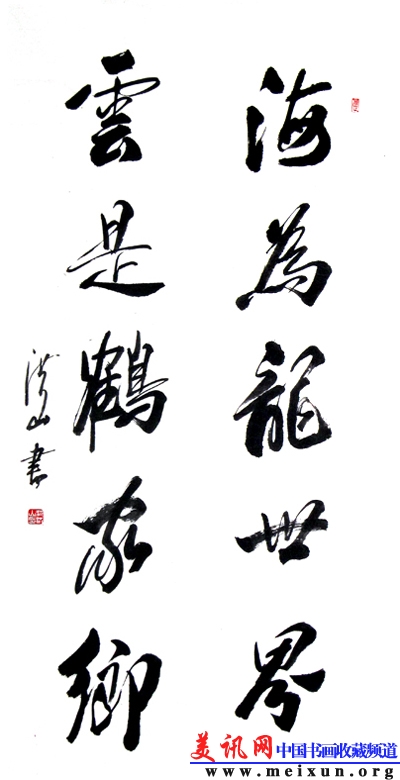 海為龍世界
雲是鶴家鄉
洪山書
美讯网 中国书画收藏频道
www.meixun.org